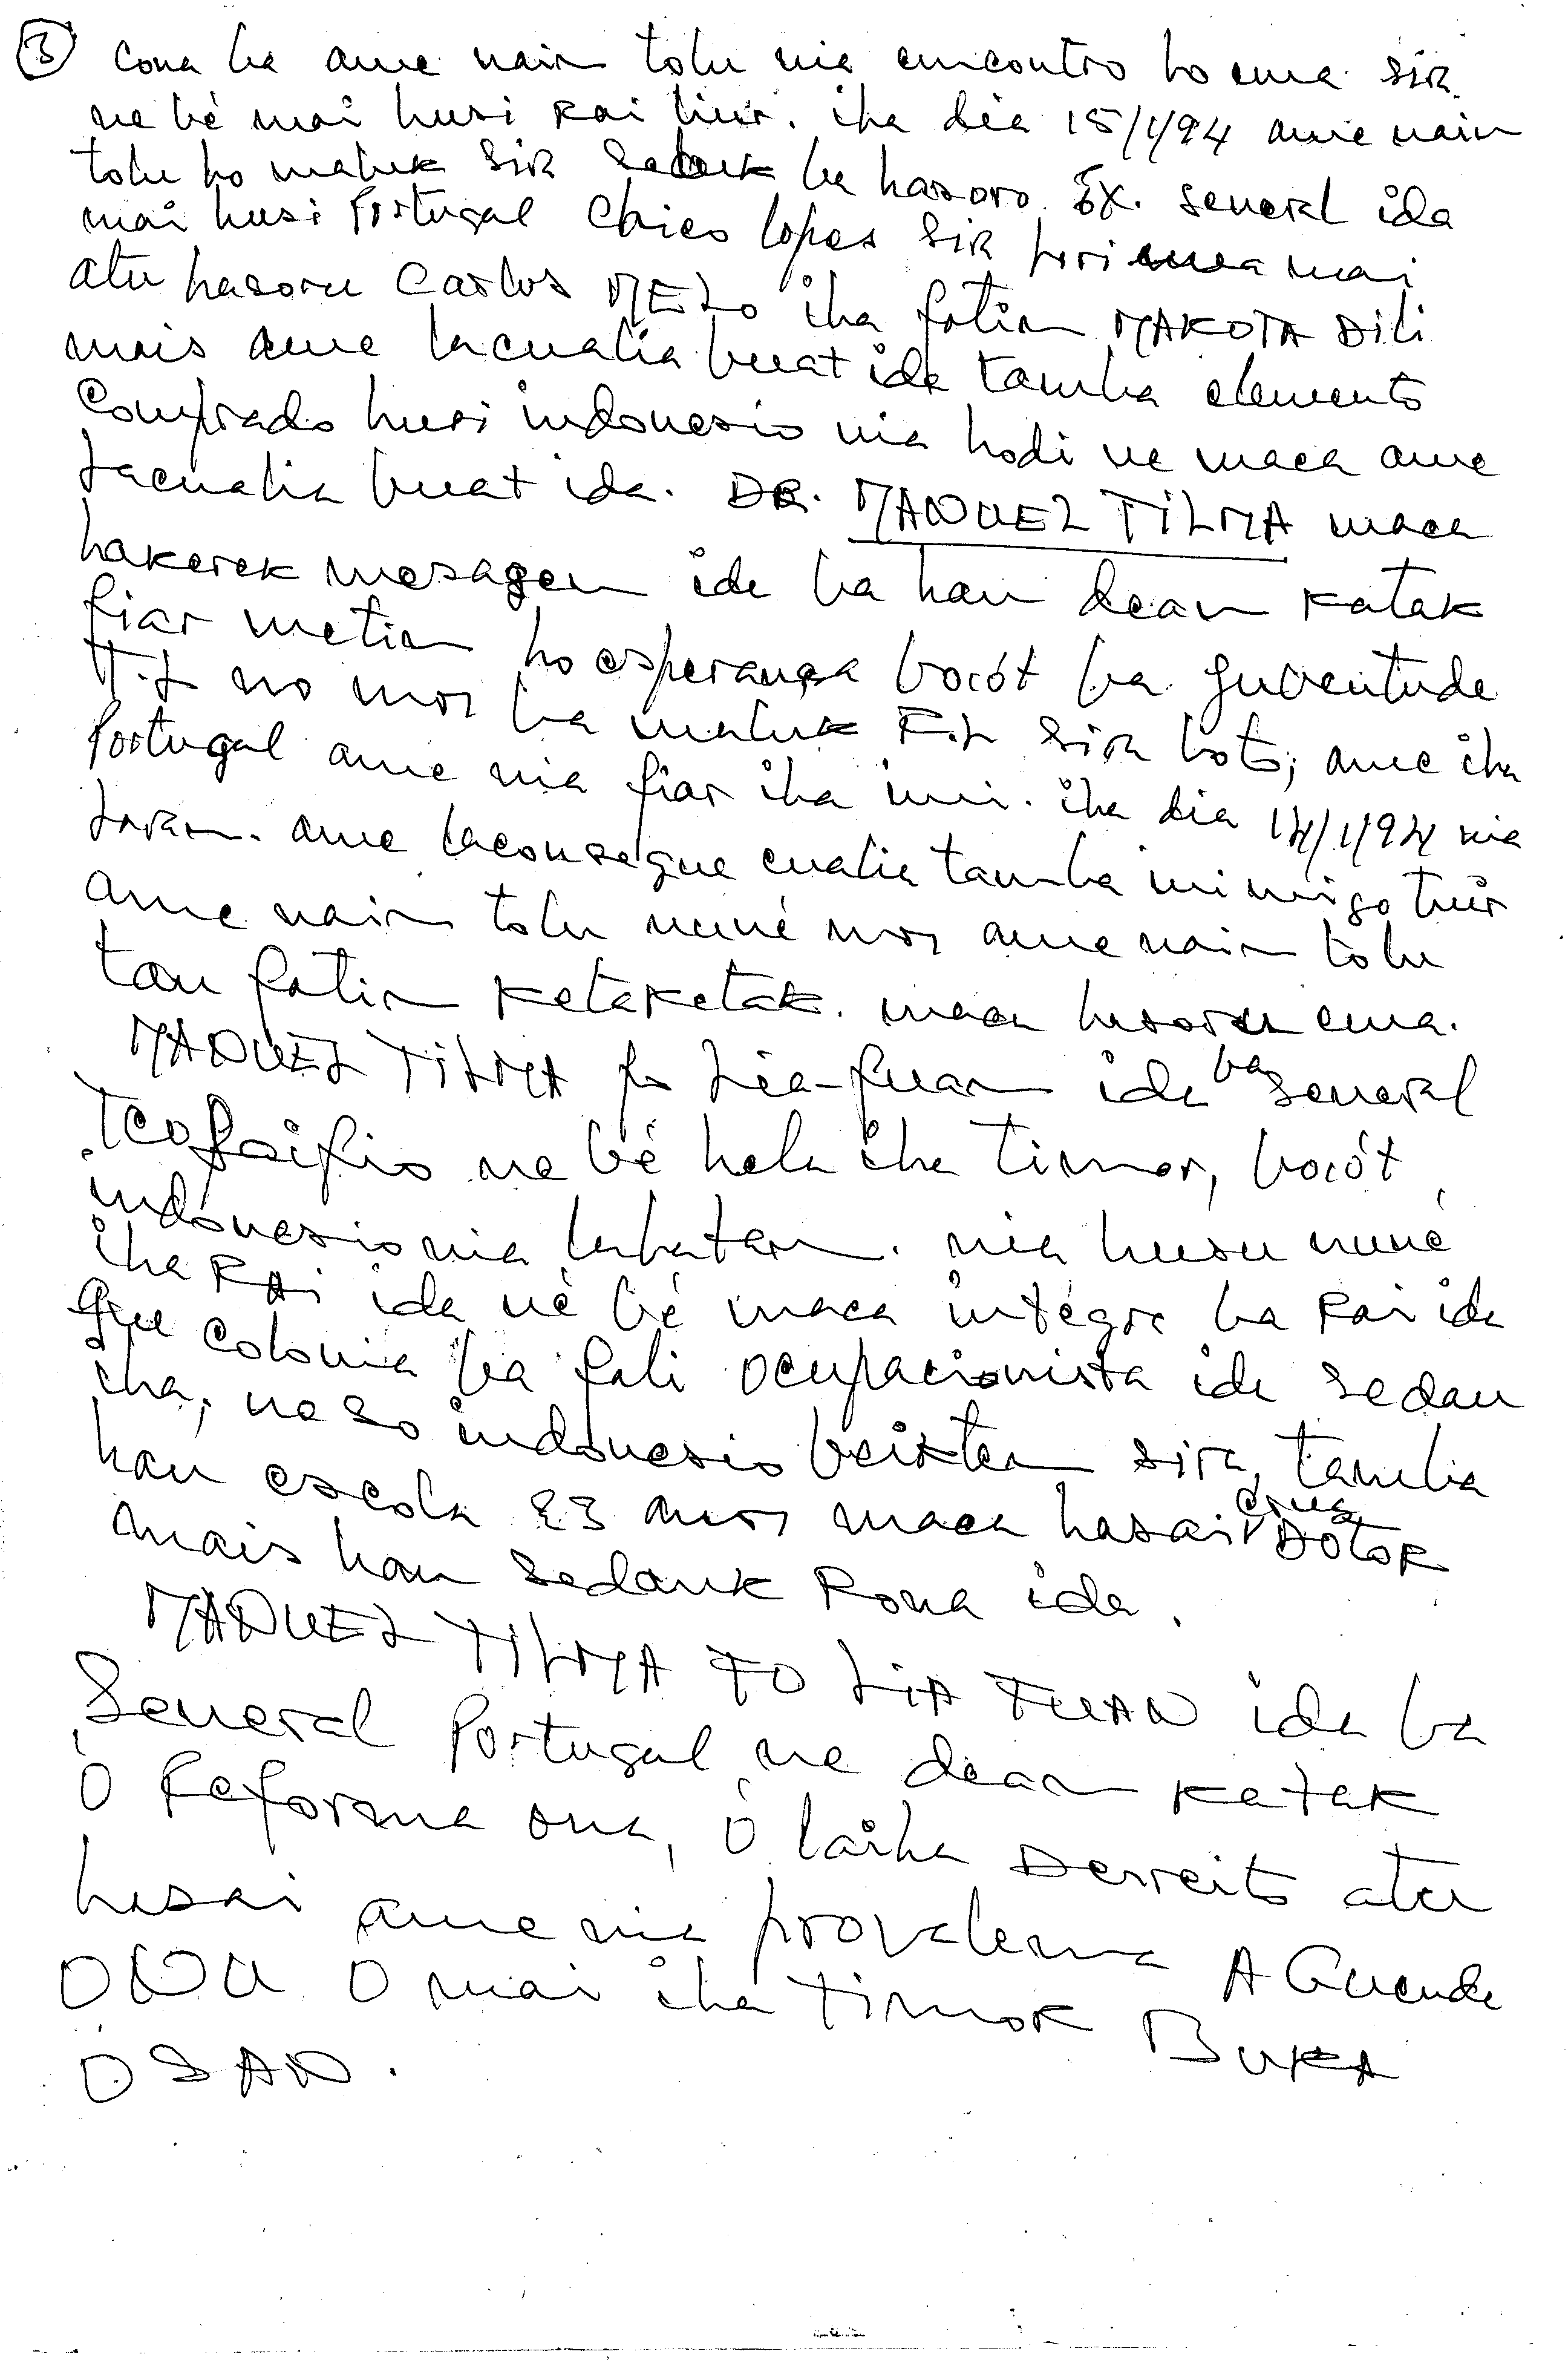 ③ cona ba ame nain tolu nia encontro ho ema sira
ne bé mai husi rai liur. iha dia 15/1/94 ame nain
tolu ho maluk sira seluk ba hasoro Ex. seneral ida
mai husi Portugal Chico lopes sira hori mai
atu hasoru Carlos MELO iha fatin MAKOTA Dili
mais ame lacualia buat ida tamba elemento
Comprado husi indonesio nia hodi ne maca ame
Lacualia buat ida. DR. MANUEL TiLMA maca
hakerek mesagen ida ba hau dean katak
fiar metin ho esperança bocót ba Juventude
T.L no mos ba maluk F.L sira hoto; ame iha
Portugal ame nia fiar iha imi. iha dia 14/1/94 nia
Loran. ame laconsegue cualia tamba inimigo tuir
ame nain tolu nuné mos ame nain tolu
tau fatin ketaketak. maca hasoru ema.
MANUEL TiLMA fo Lia-fuan ida ba seneral
Teofsifio ne bé hela iha timor, bocót
indonesio nia labatan. nia husu nuné
iha RAi ida né bé maca integra ba Rai ida
que colonia ba fali ocupacionista ida sedau
iha; ne so indonesio beikten sira, tamba
hau escola 23 anos maca hasai cma DOtOR
mais hau sedauk Rona ida.
MANUEL TiLMA FO LiA FUAN ida ba
Seneral Portugal ne dean katak
O Reforma ona, O laiha Derreito atu
hasai ame nia provalema AGuenda
ONU O mai iha timor BUKA
OSAN.